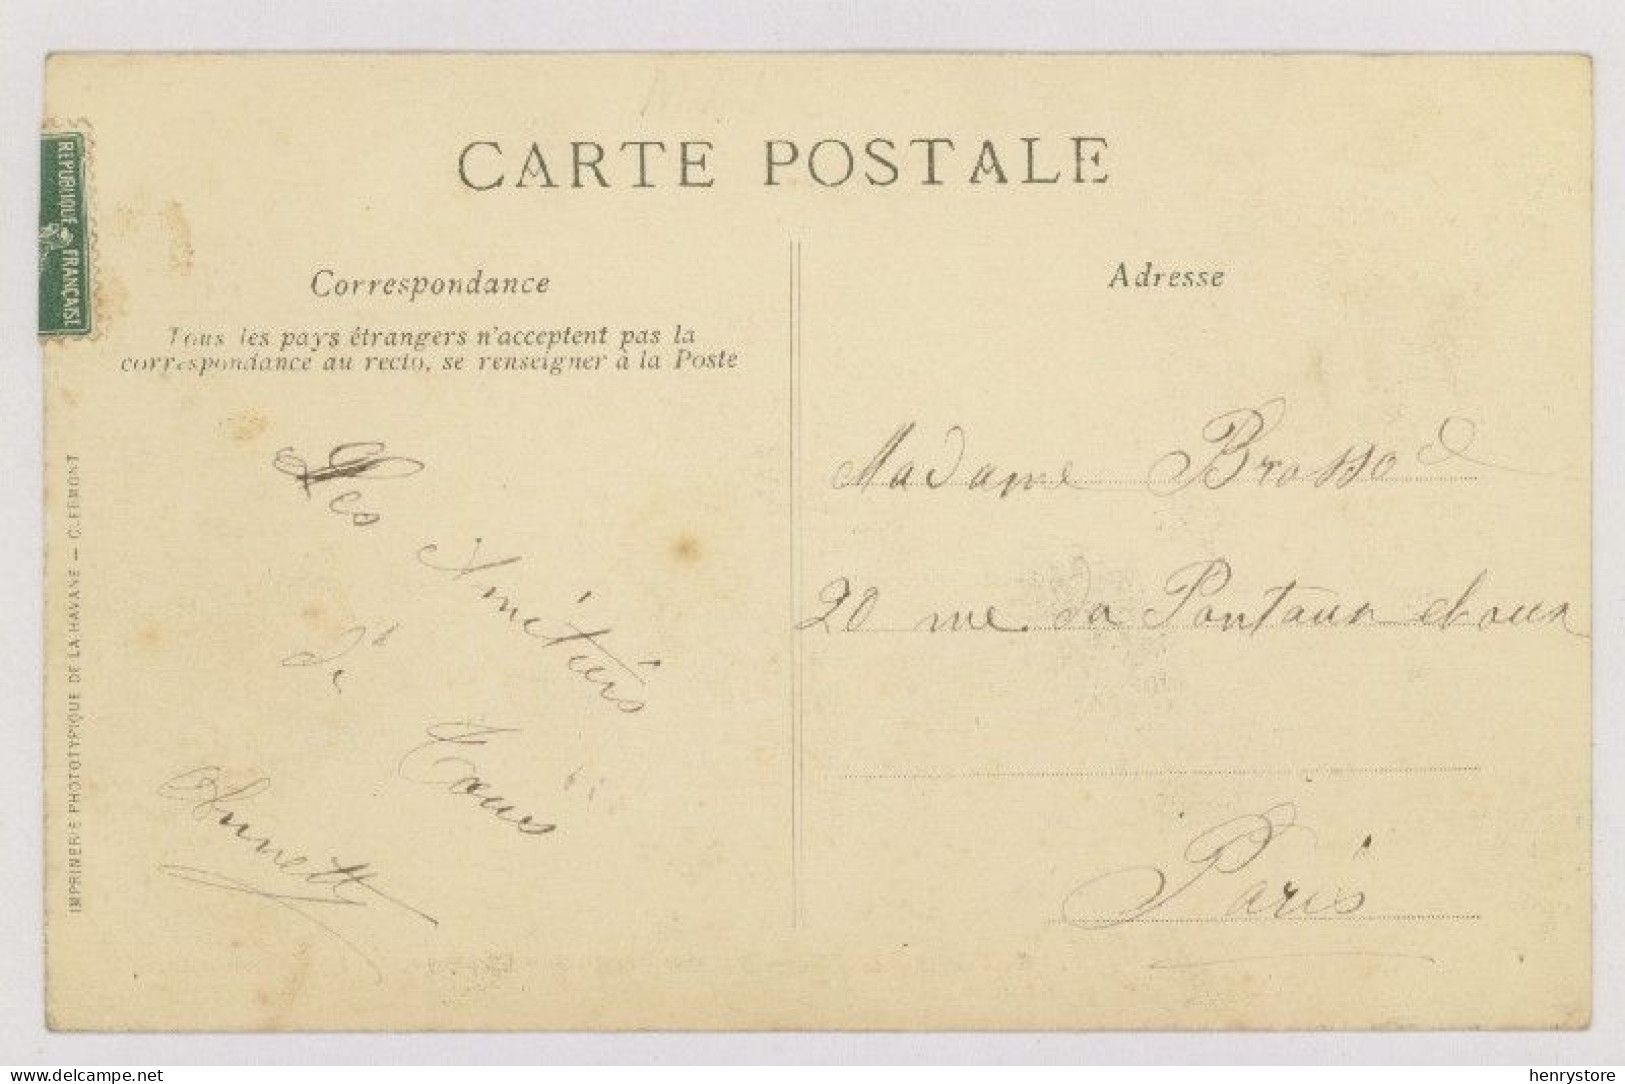 CARTE POSTALE
REPUBLIQUE FRANÇAISE
Correspondance
Tous les pays étrangers n'acceptent pas la
correspondance au recto, se renseigner à la Poste
Les
Amétiers
de
Tous
Annett
IMPRIMERIE PHOTOTYPIQUE DE LA HAVANE — CLERMONT
Adresse
Madame Brosso
20 rue da
Paris
delcampe.net
henrystore